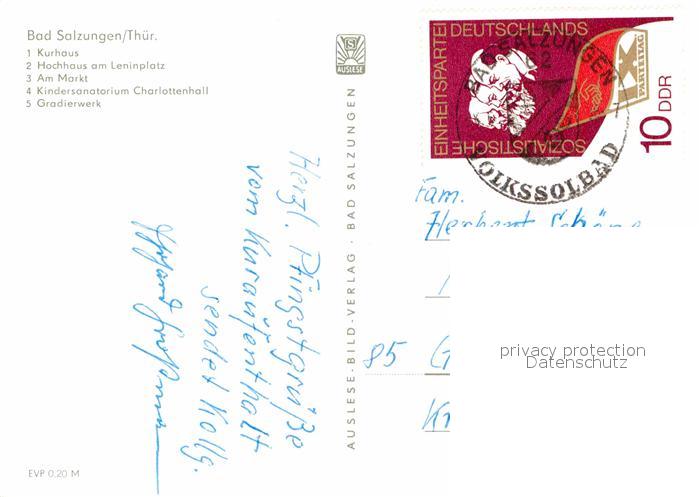 Bad Salzungen/Thür.
1 Kurhaus
2 Hochhaus am Leninplatz
3 Am Markt
4 Kindersanatorium Charlottenhall
5 Gradierwerk
AUSLESE
AUSLESE-BILD-VERLAG · BAD SALZUNGEN
EINHEITSPARTEI DEUTSCHLANDS
SOZIALISTISCHE
IX
PARTEITAG
10 DDR
BAD SALZUNGEN
VOLKSSOLBAD
Herzl. Pfingstgrüße
vom Kuraufenthalt
sendet Kollg.
Fam.
Herbert
85 G
privacy protection
Datenschutz
K
EVP 0,20 M